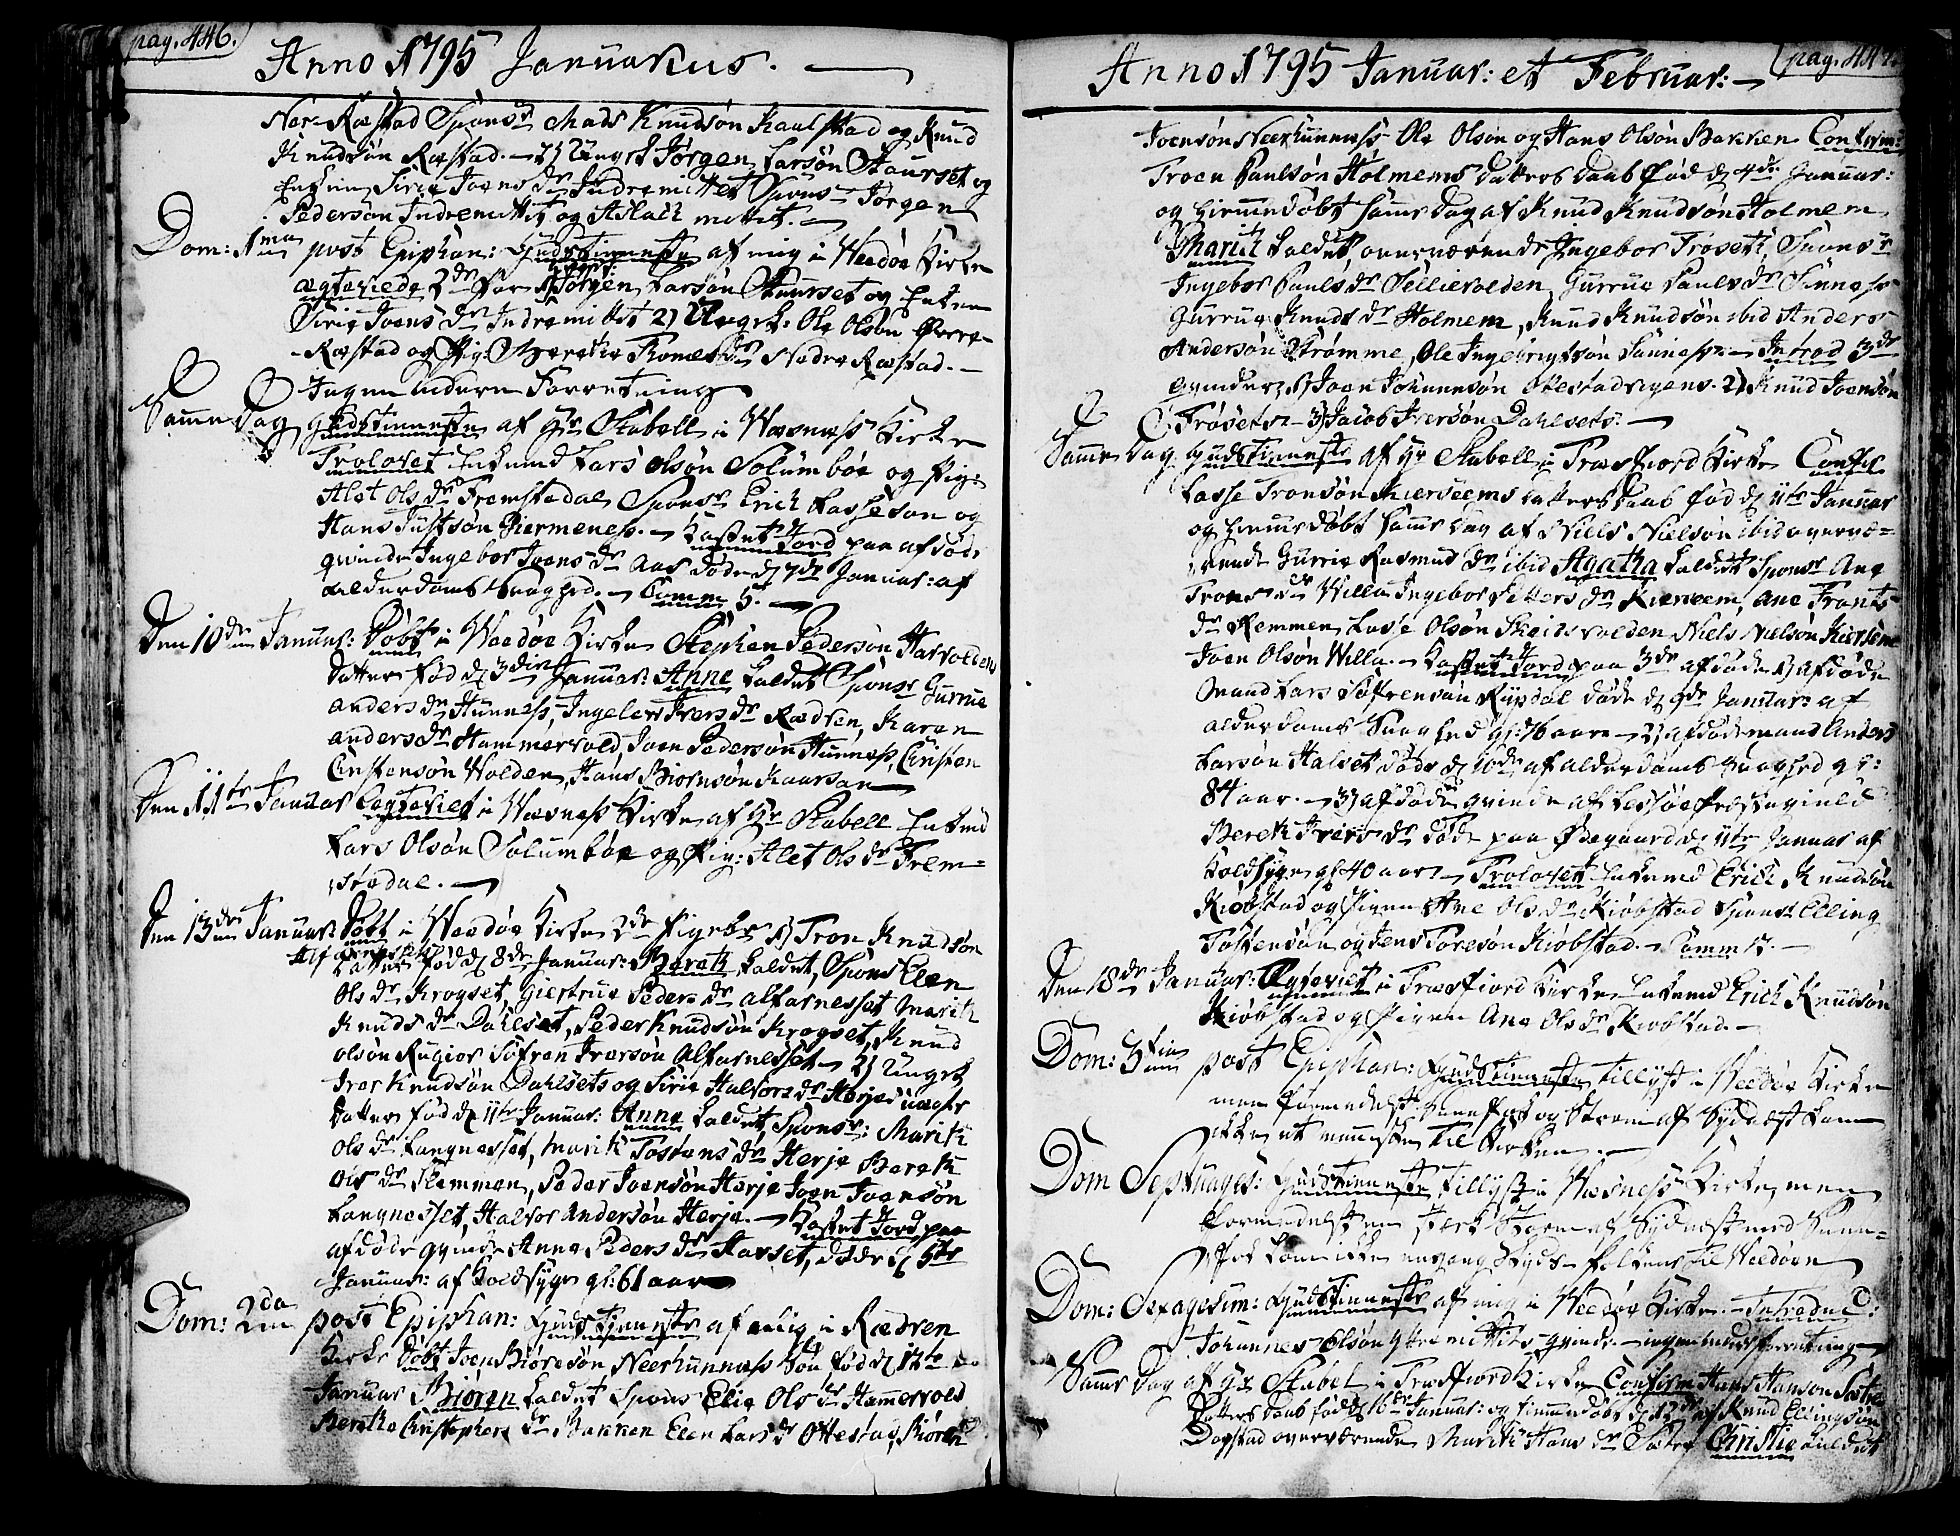 pag. 446.
Anno 1795 Januarius.
Ner-Ræstad Spons: Mads Knudsøn Kaulstad og Knud
Knudsøn Ræstad. 2) Ungk: Jørgen Larsøn Staurset og
Enken Sirie Joens dr Indremittet Spons Jørgen
Pedersøn Indremittet og Aslack mittet.
Dom: 1ma post Epiphan: Gudstienneste af mig i Weedøe Kirke
ægteviede 2de Par 1) Jørgen Larsøn Staurset og Enken
Sirie Joens dr Indremittet 2) Ungk: Ole Olsøn Øvre-
Ræstad og Pig: Nedre Ræstad.
Ingen videre Forretning
Samme Dag Gudstienneste af Hr Stabell i Wæsness Kirke
Trolovet Enkemd Lars Olsøn Solumbøe og Pig:
Alet Ols dr Fremstedal Spons Erich Lassesøn og
Hans Justsøn Biermeness. Kastet Jord paa afdøde
qvinde Ingebor Joens dr Aas døde d 7de Januar: af
Alderdoms Svaghed. Comm 5.
Den 10de Januar: Døbt i Weedøe Kirke Stephen Pedersøn Harvoldens
datter fød d 3die Januar: Anne kaldet Spons: Gurrue
Anders dr Hunness, Ingeler Ivers dr Rædven, Karen
Anders dr Hammervold, Joen Pedersøn Hunness, Cristen
Cristensøn Wolden, Hans Biørnsøn Kaarsan
Den 11te Januar Ægteviet i Wæsness Kirke af Hr Stabell Enkemd
Lars Olsøn Solumbøe og Pig: Alet Ols dr Frem-
stedal.
Den 13de Januar: Døbt i Weedøe Kirke 2de Pigebr 1) Tron Knudsøn
Alfarnessets
datter fød d 8de Januar: Berek kaldet, Spons Elen
Ols dr Krogset, Giertrue Peders dr Alfarnesset Marik
Knuds dr Dahlset, Peder Knudsøn Krogset, Knud
Olsøn Rugior Søfren Iversøn Alfarnesset 2) Ungk
Iver Knudsøn Dahlsets og Sirie Halvors dr Herje
datter fød d 11te Januar: Anne kaldet, Spons: Marik
Ols dr Langnesset, Marik Tostens dr Herje Berek
Ols dr Flemmen, Peder Joensøn Herje Joen Joensøn
Langnesset, Halvor Andersøn Herje. Kastet Jord paa
afdøde qvinde Anne Peders dr Harset, døde d 5te
Januar: af Koldsyge gl: 61 aar
Dom: 2da post Epiphan: Gudstienneste af mig i Rædven
Kirke Døbt Joen Biørnsøn Neerhunness Søn fød d 12te
Januar Biørn kaldet Spons Elie Ols dr Hamervold
Berethe Cristophers dr Bakken Elen Lars dr Ottestad, Biørn
Anno 1795 Januar: et Februar:
pag. 447.
Joensøn Neerhunness Ole Olsøn og Hans Olsøn Bakken Confirm:
Troen Paulsøn Holmems datters daab fød d 4de Januar:
og hiemmedøbt samme dag af Knud Knudsøn Holmem
Marith kaldet, overværende Ingebor Trøseth, Spons:
Ingebor Pauls dr Sellievolden, Gurrue Pauls dr Sinness
Gurrue Knuds dr Holmem, Knud Knudsøn ibid Anders
Andersøn Strømme, Ole Ingebrigtsøn Sanness. Introd 3de
qvinder, 1) Joen Johannesøn Okestadvigens. 2) Knud Joensøn
Trøsets 3) Jacob Iversøn Dahlsets.
Samme Dag Gudstienneste af Hr Stabell i Træsfjord Kirke Confir
Lasse Tronsøn Kierseems datters daab fød d 11te Januar
og hiemmedøbt samme dag af Niels Nielsøn ibid overvæ-
rende Gurrie Rasmus dr ibid Agatha kaldet Spons: Ane
Trons dr Willa Ingebor Petters dr Kierseem, Ane Frants
dr Remmen Lasse Olsøn Skeidsvolden Niels Nielsøn Kierseem
Joen Olsøn Willa. Kastet Jord paa 3de afdøde 1) afdøde
Mand Lars Søfrensøn Rypdal døde d 9de Januar: af
alderdoms Svaghed gl: 76 aar 2) afdøde mand Anders
Larsøn Halset døde d 10de af alderdoms svaghed gl:
84 aar. 3) afdøde qvinde af Lessøe Præstegield
Berek Ivers dr døde paa Ødegaard d 11te Januar af
Koldsyge gl 40 aar Trolovet Enkemd Erich Knudsøn
Kiøbstad og Pigen Ane Ols dr Kiøbstad Spons: Elling
Tostensøn og Jens Toresøn Kiøbstad. Comm 17.
Den 18de Januar: Ægteviet i Træsfjord Kirke Enkemd Erich Knudsøn
Kiøbstad og Pigen Ane Ols dr Kiøbstad.
Dom: 3tia post Epiphan: Gudstienneste tillyst i Weedøe Kirke
men formedelst og Storm af Sydvest kom
ikke et menneske til Kirken.
Dom Septuages: Gudstienneste tillyst i Wæsness Kirke, men
formedelst en stærk Storm af Sydvest med Snee-
kom ikke engang Skyds-Folkene til Weedøen
Dom: Sexagesim: Gudstienneste af mig i Weedøe Kirke. Introduc:
Johannes Olsøn Yttremittets qvinde. ingen videre forretning
Samme Dag af Hr Stabel i Træsfjord Kirke Confirm Hans Hansøn Sætre
datters daab fød d 16de Januar: og hiemmedøbt d af Knud Ellingsøn
Dogstad overværende Marith Hans dr Sætre Christie kaldet